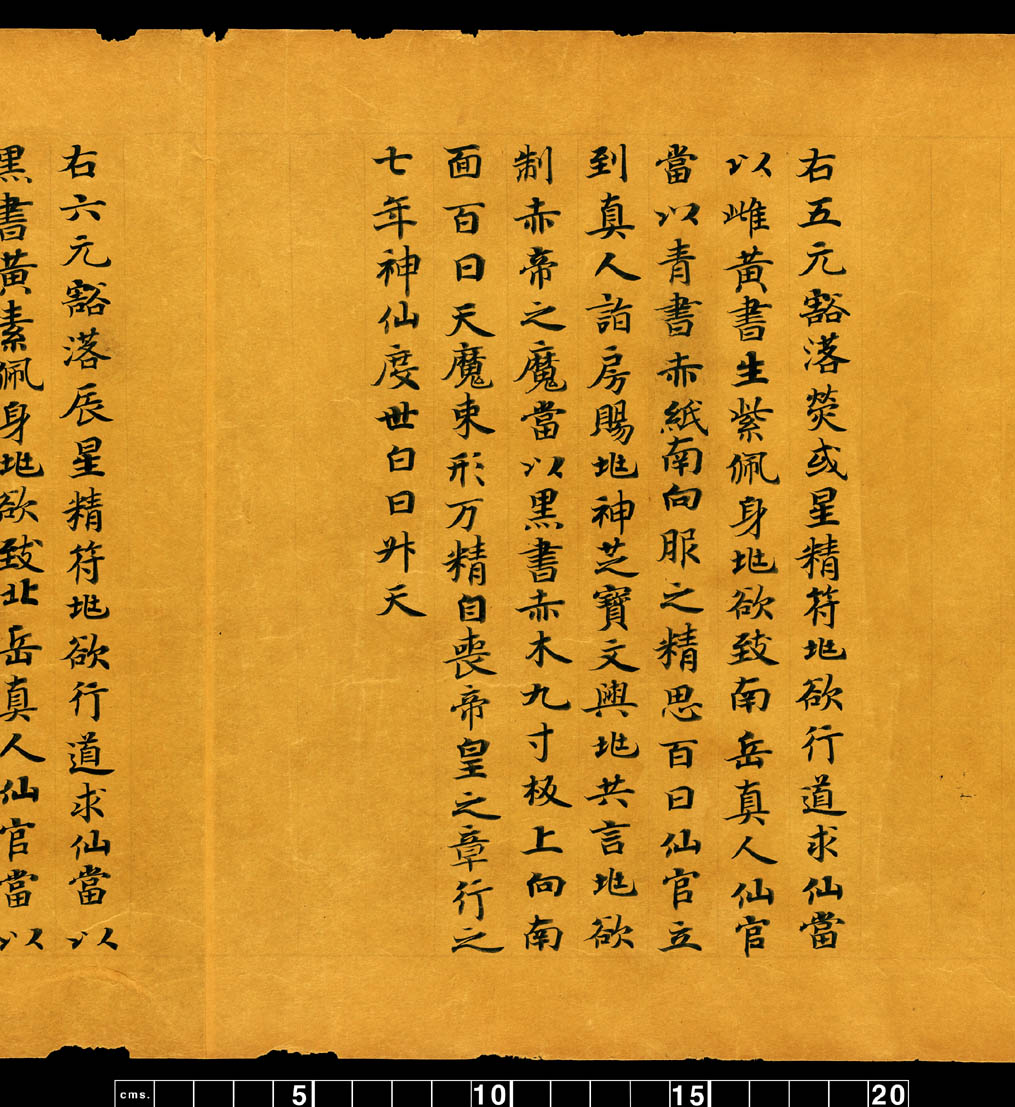 右五元豁落熒或星精符兆欲行道求仙當
以雌黃書生紫佩身兆欲致南岳真人仙官
當以青書赤紙南向服之精思百日仙官立
到真人詣房賜兆神芝寶文與兆共言兆欲
制赤帝之魔當以黑書赤木九寸板上向南
面百日天魔束形万精自喪帝皇之章行之
七年神仙度世白日升天
右六元豁落辰星精符兆欲行道求仙當以
黑書黃素佩身兆欲致北岳真人仙官當以
cms. 5 10 15 20